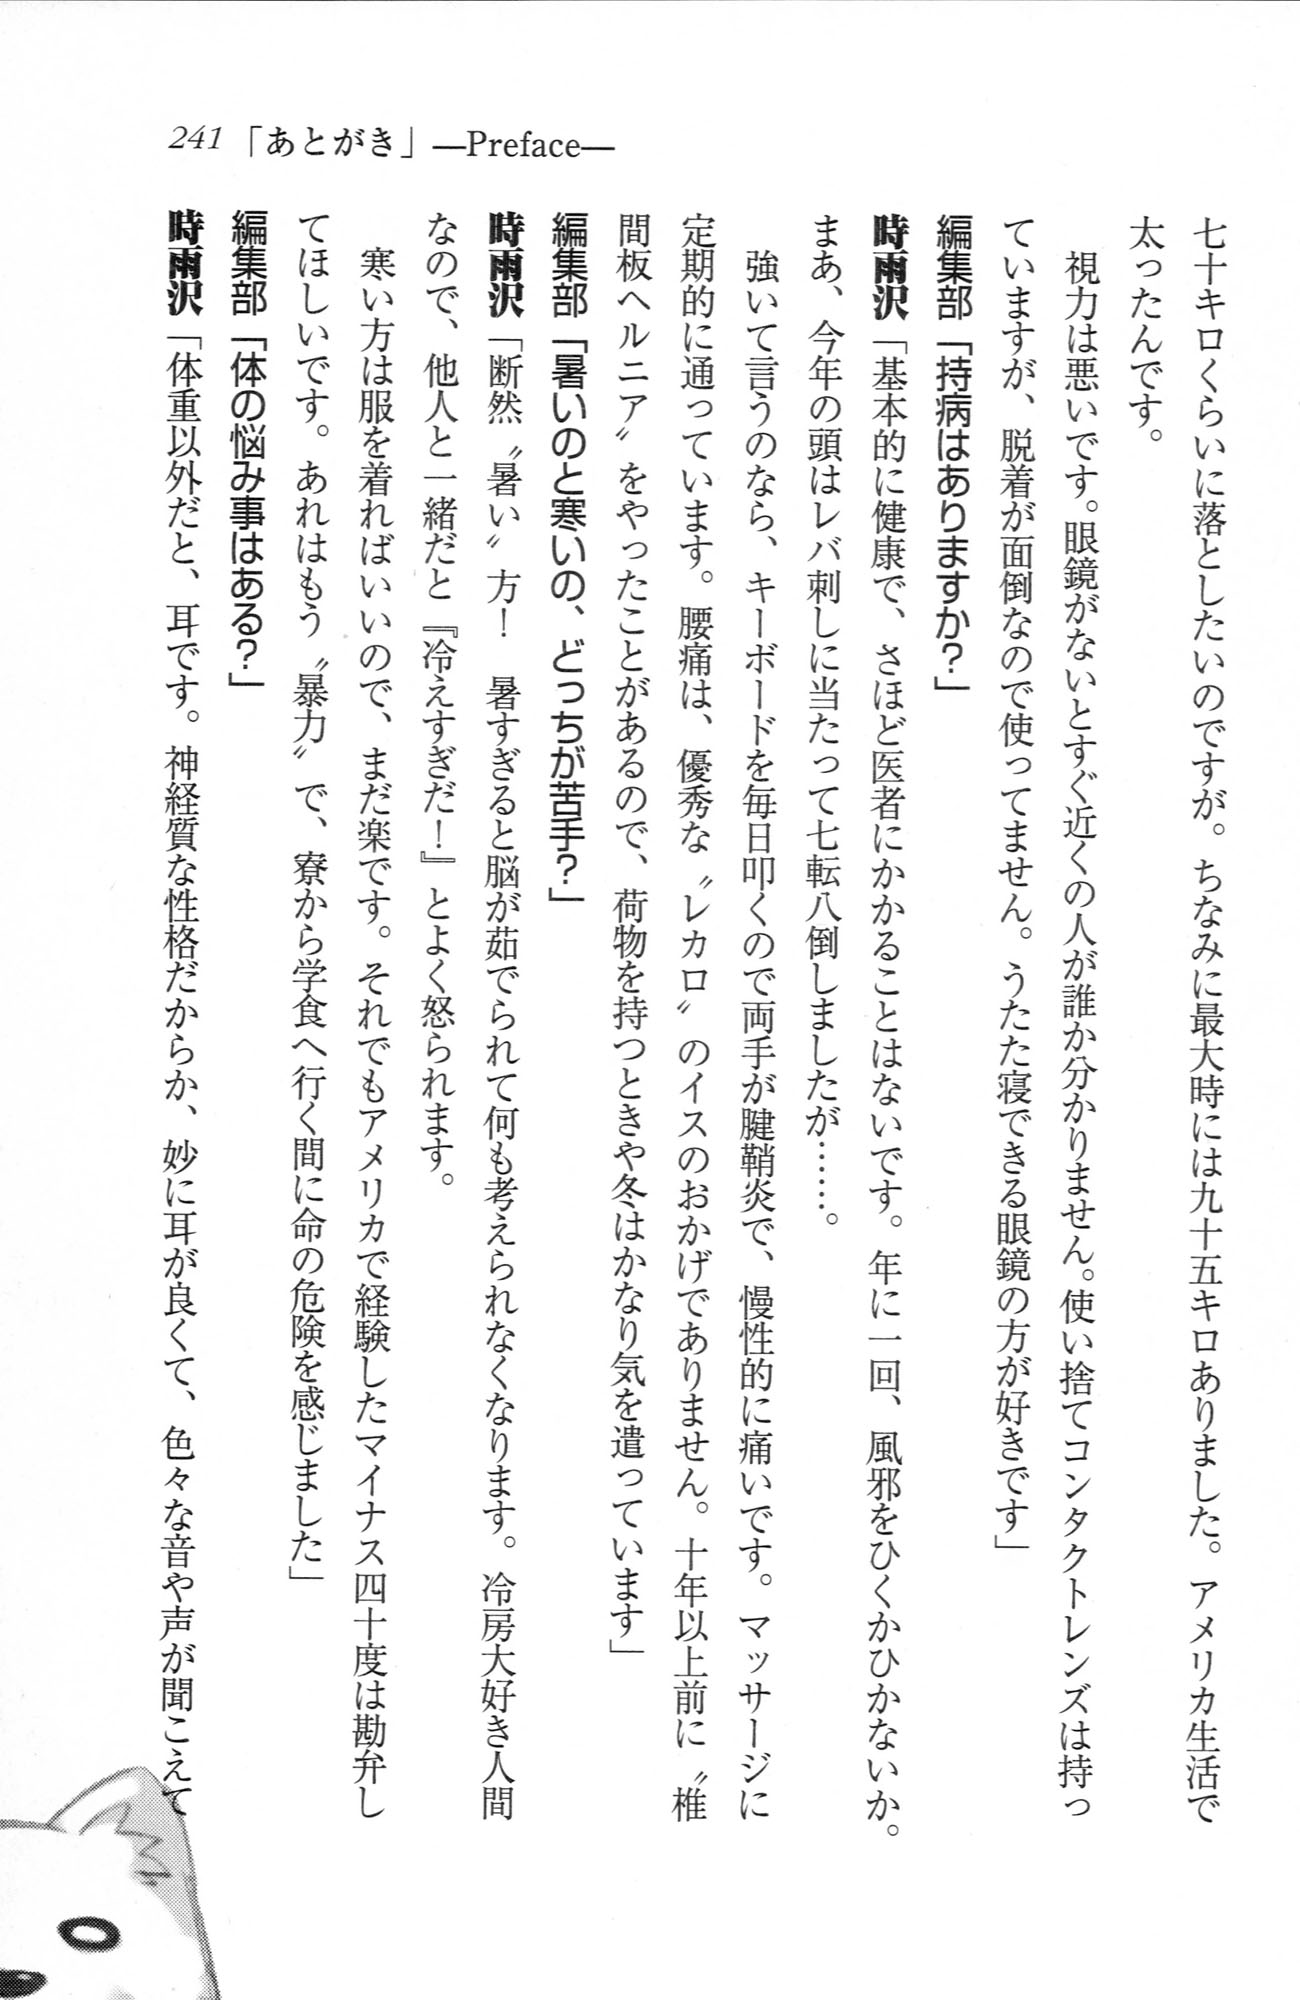 241「あとがき」―Preface―
七十キロくらいに落としたいのですが。ちなみに最大時には九十五キロありました。アメリカ生活で
太ったんです。
　視力は悪いです。眼鏡がないとすぐ近くの人が誰か分かりません。使い捨てコンタクトレンズは持っ
ていますが、脱着が面倒なので使ってません。うたた寝できる眼鏡の方が好きです」
編集部「持病はありますか？」
時雨沢「基本的に健康で、さほど医者にかかることはないです。年に一回、風邪をひくかひかないか。
まあ、今年の頭はレバ刺しに当たって七転八倒しましたが……。
　強いて言うのなら、キーボードを毎日叩くので両手が腱鞘炎で、慢性的に痛いです。マッサージに
定期的に通っています。腰痛は、優秀な〝レカロ〟のイスのおかげでありません。十年以上前に〝椎
間板ヘルニア〟をやったことがあるので、荷物を持つときや冬はかなり気を遣っています」
編集部「暑いのと寒いの、どっちが苦手？」
時雨沢「断然〝暑い〟方！　暑すぎると脳が茹でられて何も考えられなくなります。冷房大好き人間
なので、他人と一緒だと『冷えすぎだ！』とよく怒られます。
　寒い方は服を着ればいいので、まだ楽です。それでもアメリカで経験したマイナス四十度は勘弁し
てほしいです。あれはもう〝暴力〟で、寮から学食へ行く間に命の危険を感じました」
編集部「体の悩み事はある？」
時雨沢「体重以外だと、耳です。神経質な性格だからか、妙に耳が良くて、色々な音や声が聞こえて